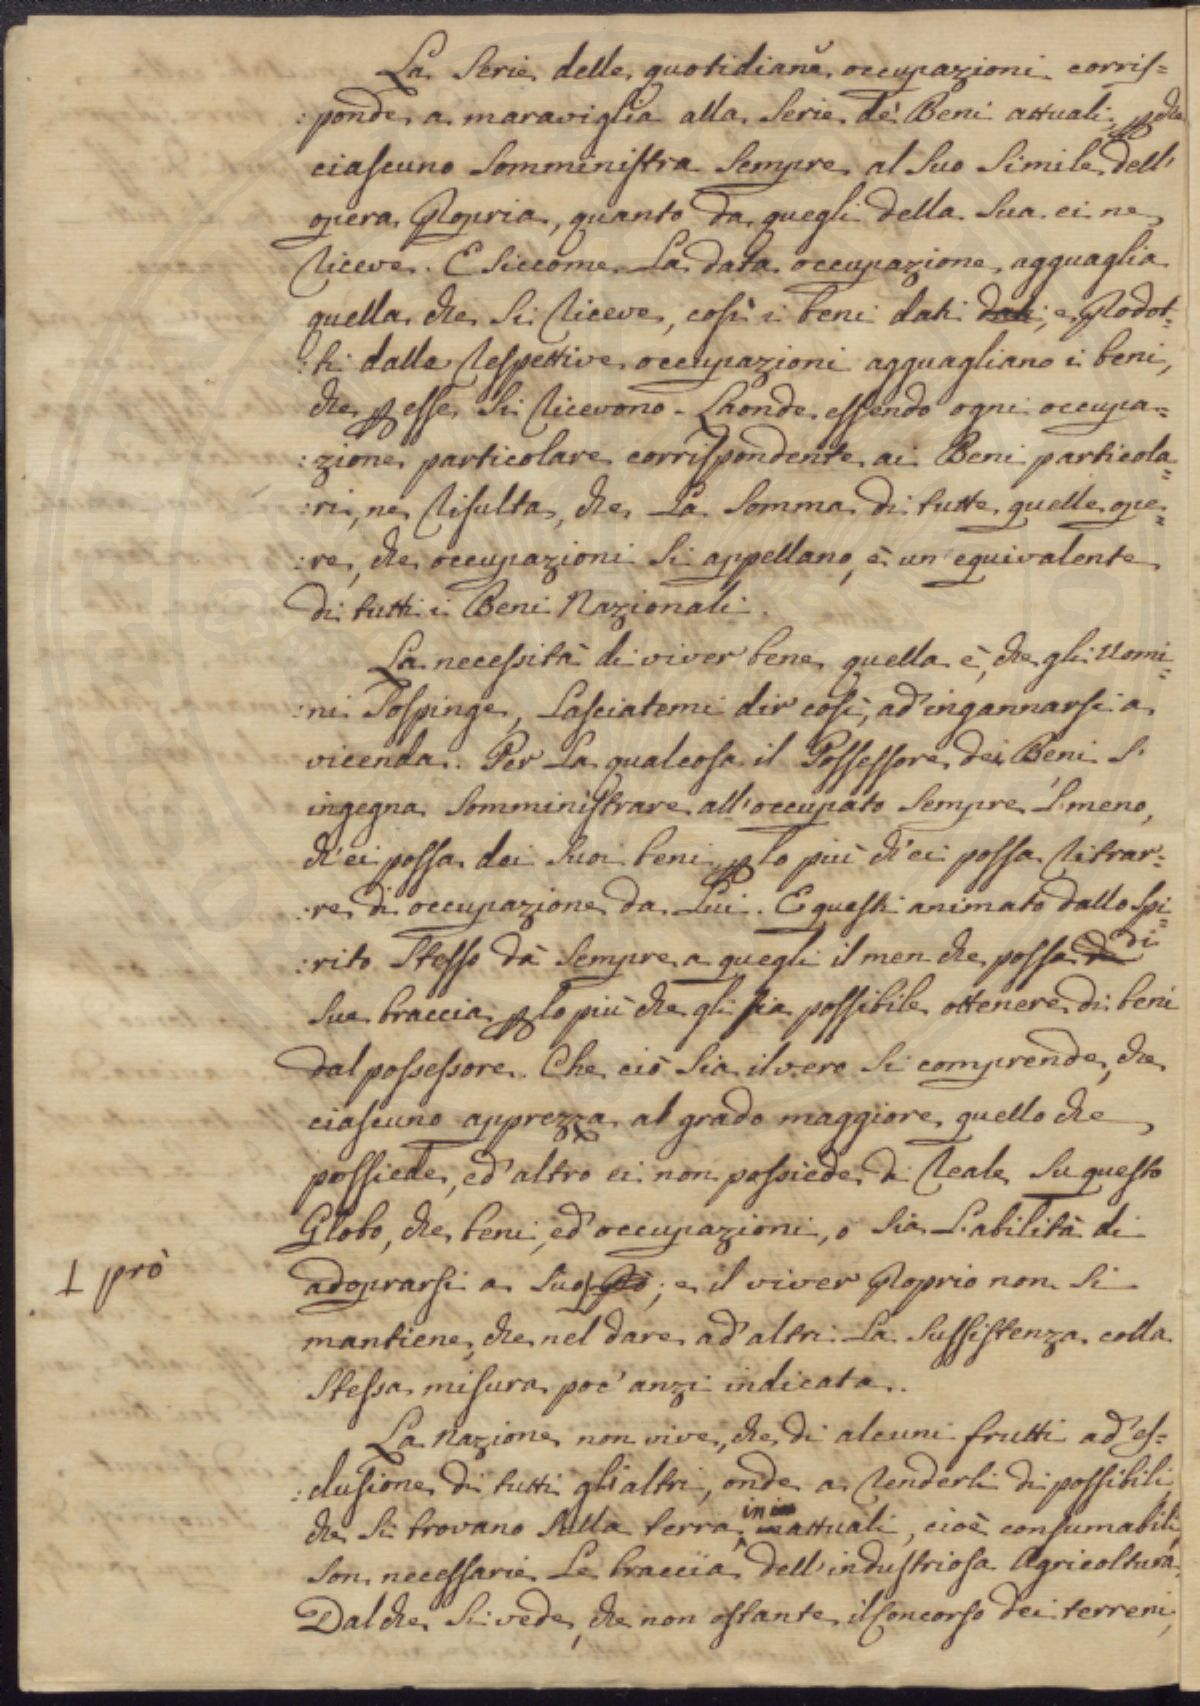 La Serie delle quotidiane occupazioni corris=
:ponde a maraviglia alla Serie de' Beni attuali, p che
ciascuno Somministra Sempre al Suo Simile dell'
opera Propria, quanto da quegli della Sua ei ne
riceve. E Siccome La data occupazione agguaglia
quella che Si riceve, così i beni dati dati, e Prodot=
:ti dalle respettive occupazioni agguagliano i beni,
che p esse Si ricevono. Laonde essendo ogni occupa=
:zione particolare corrispondente ai Beni particola=
:ri, ne risulta, che La Somma di tutte quelle ope=
:re, che occupazioni Si appellano, è un'equivalente
di tutti i Beni Nazionali.
La necessità di viver bene quella è, che gli Uomi=
:ni Sospinge, Lasciatemi dir così, ad'ingannarsi a
vicenda. Per La qualcosa il Possessore dei Beni S'
ingegna Somministrare all'occupato Sempre il meno,
ch'ei possa dei Suoi beni p lo più ch'ei possa ritrar=
:re di occupazione da Lui. E questi animato dallo Spi=
:rito Stesso dà Sempre a quegli il men che possa de di
Sue braccia p lo più che gli Sia possibile ottenere di beni
dal possessore. Che ciò Sia il vero Si comprende, che
ciascuno apprezza al grado maggiore quello che
possiede, ed'altro ei non possiede di reale Su questo
Globo, che beni, ed'occupazioni, o Sia L'abilità di
⊥ prò
adoprarsi a Suo Prò; e il viver Proprio non Si
mantiene, che nel dare ad'altri La Sussistenza colla
Stessa misura poc'anzi indicata.
La Nazione non vive, che di alcuni frutti ad'es=
:clusione di tutti gli altri, onde a renderli di possibili,
che Si trovano Sulla terra, in attuali, cioè consumabili,
Son necessarie Le braccia dell'industriosa Agricoltura.
Dal che Si vede, che non ostante il Concorso dei terreni,